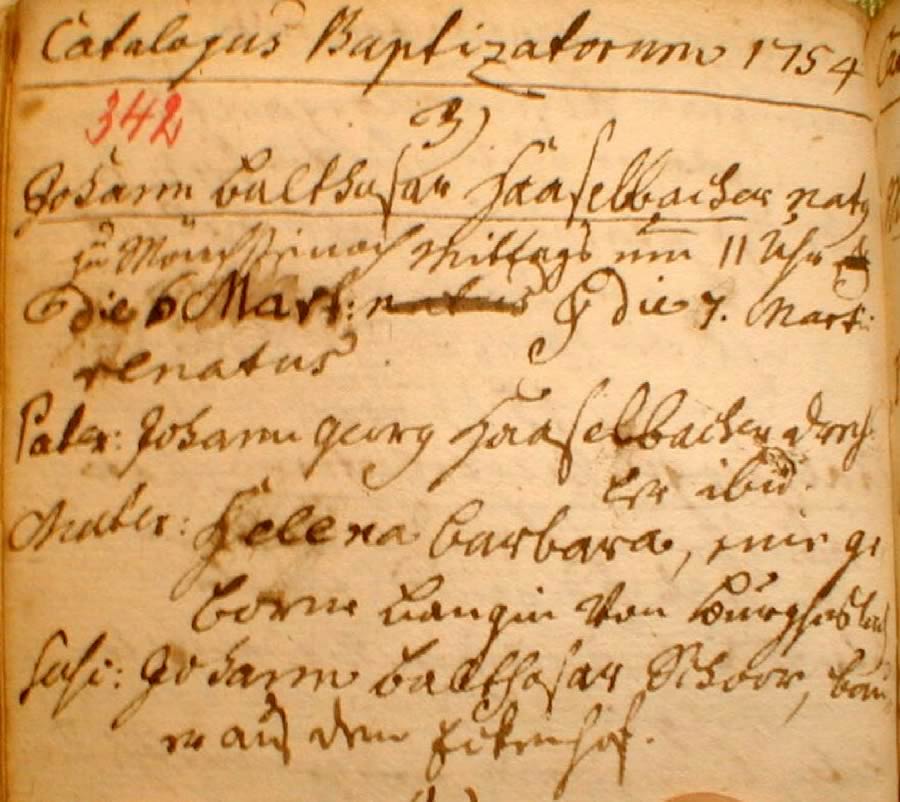 Catalogus Baptizatorum 1754
342
3)
Johann Balthasar Haaselbacher natq
zu Münchsteinach Mittags um 11 Uhr
die 6 Mart: natus & die 7. Mart:
renatus
Pater: Johann Georg Haaselbacher Drechs
ler ibid.
Mater: Helena Barbara, eine ge
borne Langin von Burghaslach
Susc: Johann Balthasar Schoor, bau
er aus dem Eckenhof.